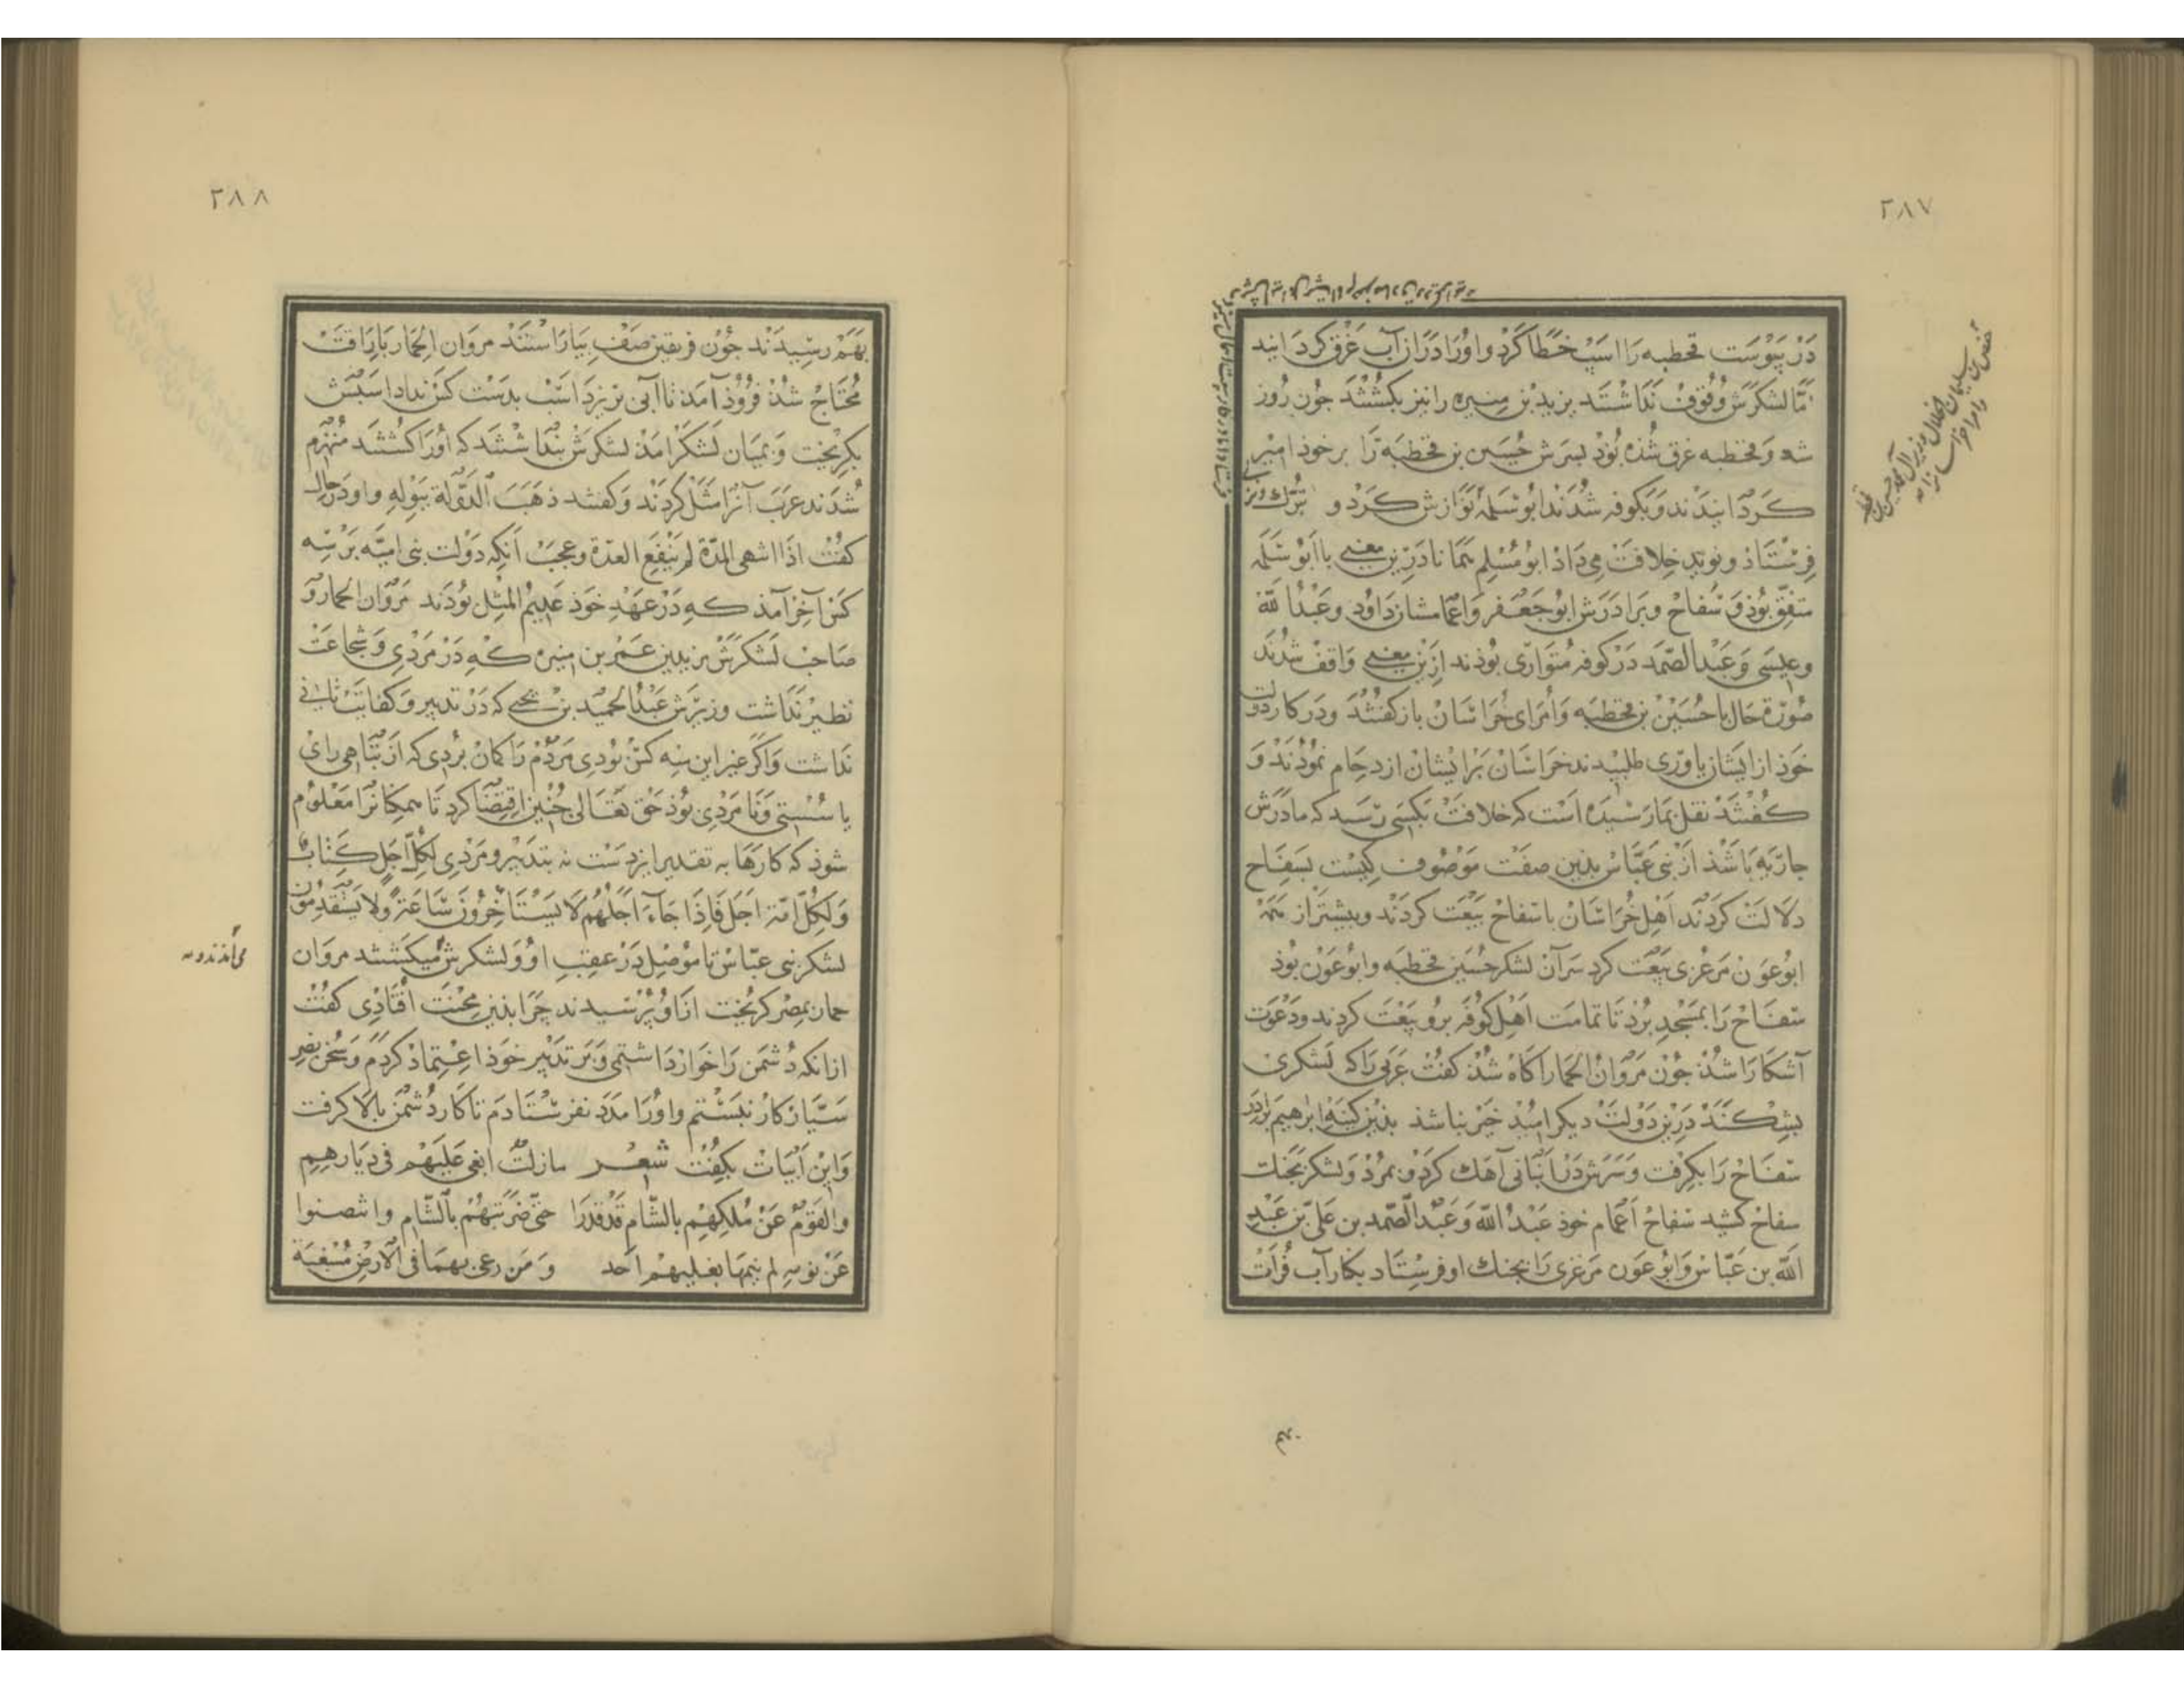 ٢٨٧
دَرْ پَیْوَسْت قحطبه رَا اسَپْ خطَا کَرْد و اورَا دَرَاز آب غَرْق کرْدَانید
امَّا لشکرَش وُقوُفْ نَدَاشتند یزید بْن هبیره را نیز بکُشْتَد جُون رُوز
شد وَ قحطبه غرق شُدَه بُوْد بسَرش حُسَین بن قحطبَه رَا برخوذ امیر
کَرْدَانیدَند وَ بکوفه شُدَند ابوُسَلمَهْ نوَازِش کَردْ و
فِرِسْتَاذ و نوید خِلافَتْ می دَاذ ابومُسْلِم هَمَانا دَرین مَعْنی با ابوُسَلمَه
متفِقْ بُوذ وَ سَفاح و بَرادَرَش ابوُجَعْفر وَ اعمَامشان دَاوُد وعَبْدُ اللّه
وعیسَی وَ عَبْدالصّمَد دَرْکوفه مُتوَاری بُوذند ازین مَعْنی وَاقفْ شُدَند
صُوْرَة حَال با حُسَیْن بْن قحطَبَه وَ اُمرَای خُرَاسَانْ بازکفتند ودَرکار دَولت
خوذ از ایشان یاوَری طلبیدند خرَاسَانْیان بَر ایشان ازدحَام نموُدَند وَ
کفتندْ نقل بمَا رَسیدَه اسْت که خلافَتْ بکَسَی رسَد که مادَرَش
جارَیَه بَاشذ ازْ بنی عَبَّاسْ بدین صفَت مَوْصوُف کیسْت بسَفاح
دَلَالتْ کردَند اَهلِ خُرَاسَانْ با سَفاحْ بَیْعَت کردَند و بیشتر از هَمَه
ابوُعَوْنْ مَرغزی بَیعَت کرد سَرآن لشکر حُسَین قحطبَه و ابوُعَوْن بوُذ
سَفاحْ رَا بمَسْجد بُرْد تَا تمامَت اهْل کوُفَه برو بَیعَت کردند ودَعْوَت
آشکارَا شُذ جُونْ مَرْوَانُ الحِمَار آکاهْ شُذ کفْت عَرَبی رَا که لشکری
بشِکنَدْ دَرین دَوْلَتْ دیکر امیْد خَیْر نباشذ بدین کینَه ابرهیم برادر
سَفاحْ رَا بکِرفت وَ سَرَش دَرْ انبَانی آهَک کَرْد و بمُرْد وَ لشکر بجَنک
سفاحْ کشید سفاحْ اَعمَام خود عَبْدُ اللّه وَ عَبْد الصَّمَد بن علیّ بْن عَبْدِ
اللّه بن عَبّاسْ وَ ابوُعَون مَرغزی رَا بجنک او فرسْتَاد بکار آب فُرَات
٢٨٨
بهَمْ رسِیدَند جُوْن فریقین صَفْ بیَارَاستند مروَان الحِمَار باِرَاقَتْ
مُحْتَاجْ شُذ فرُوْذ آمَد تا آبی بریزد اسْب بدَسْت کسْ نداد اسَبْش
بکریخت وَ بمیَان لشکَر آمَدْ لشکرش بنداشتند که اُورَا کشتند مُنْهَزم
شُدَند عرَب آنرَا مَثَل کردَند وَ کفتند ذهَبَ الدَّوْلَة بِبَوْلِهِ و او دَرحال
کفتْ اذَا انتهی المدّة لم یَنْفَعِ العدّة وعجَبْ آنکه دَوْلت بنی امیّه بَر سه
کَسْ آخِر آمَذ که دَرْ عَهْدِ خوَد عَدِیمُ المثْل بوُدَند مَرْوَان الحمار وَ
صَاحِب لشکرش یزید بن عُمَرْ بن هبیره که دَرْ مَرْدِی وَ شجَاعَتْ
نظیر نَدَاشت وزیرَش عَبْدُ الحمید بن یحیی که دَرْ تدبیر وَ کفایَت ثانی
نَداشت وَ اکرْ غیر این سه کسْ بوُدی مَرْدُمْ رَا کمانْ برُدی که از تبَاهی رای
یا سُسْتی وَ نامَرْدی بوُذ حَقْ تعَالی جُنین اقتِضَا کرد تَا همکانرَا مَعْلوُم
شوذ که کارَها به تقدیر ایزد سْت نه بتدبیر ومَردِی لکلّ اَجَلٍ کِتَابٌ
وَلِکُلِّ اُمّة اجَلٌ فَاِذَا جَاءَ اَجَلُهُمْ لَا یَسْتَأخِرُونَ سَاعَةً وَلَا یَسْتَقدِمُونَ
لشکر بنی عبّاسْ تا موُصِل دَرْ عقِب او وَ لشکرش میکشتند مروَان
حمار بمِصْر کریخت ازاوُ پرسیدند جرَا بدین محْنَت اُفتادِی کفت
از آنکه دُشمَن رَا خوار دَاشتم وَ بَر تدبیر خوَذ اعِتماد کردَمْ وَ سُخن نصر
سَیّار کار نبستم واوُرَا مَدَد نفرستادَم تا کار دُشمَن بالا کرفت
وَ این اَبیَاتْ بکفت شعر مازلت ابغی عَلَیْهم فی دیارِهم
وَالقَوْمُ عَنْ مُلکِهِمِ بالشّام قَدْ قدَرَا حَتّی ضَرَبتهُمْ بالشّام وانتصبوا
عَنْ نومِهِ لم ینمها بعْلیهم اَحد وَ مَن رعی بهمَا فی الارضِ مُسْغبة